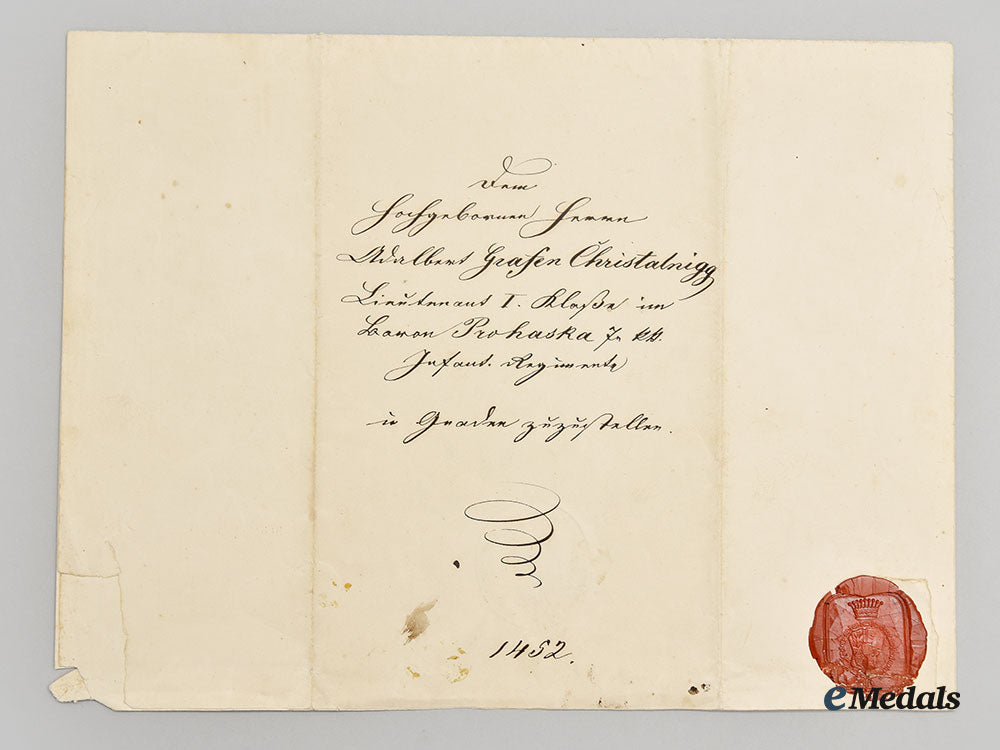 Dem
Hochgebornen Herrn
Adalbert Grafen Christalnigg
Lieutenant I. Klaße im
Baron Prohaska 7. kk.
Infant. Regimente
in Gnaden zuzustellen.
1452.
eMedals